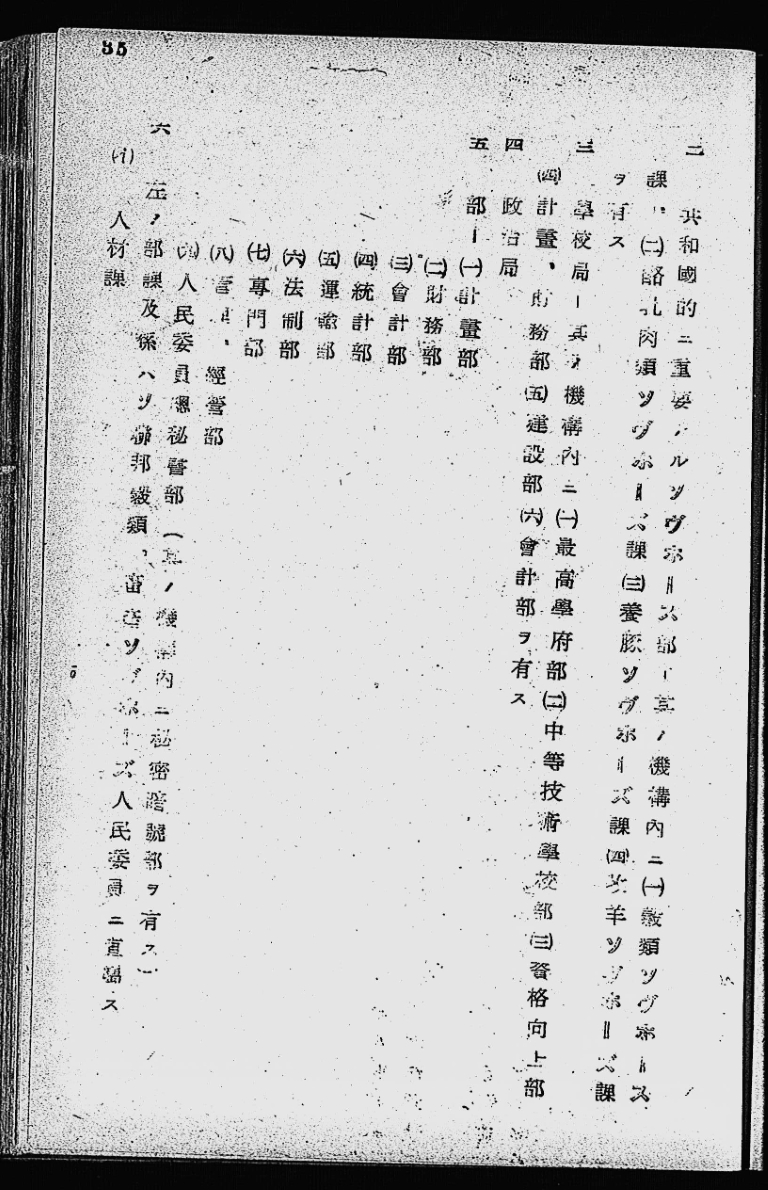 35
二 共和國的ニ重要ナルソヴホーズ部ー其ノ機構內ニ(一)穀類ソヴホーズ
課、(二)酪乳肉類ソヴホーズ課(三)養豚ソヴホーズ課(四)牧羊ソヴホーズ課
ヲ有ス
三 學校局ー其ノ機構內ニ(一)最高學府部(二)中等技術學校部(三)資格向上部
(四)計畫、財務部(五)建設部(六)會計部ヲ有ス
四 政治局
五 部ー(一)計畫部
(二)財務部
(三)會計部
(四)統計部
(五)運輸部
(六)法制部
(七)專門部
(八)管理、經營部
(九)人民委員 秘書部(其ノ機構內ニ秘密 號部ヲ有ス)
六 左ノ部課及係ハソ聯邦穀類、畜產ソヴホーズ人民委員ニ直屬ス
(イ) 人材課